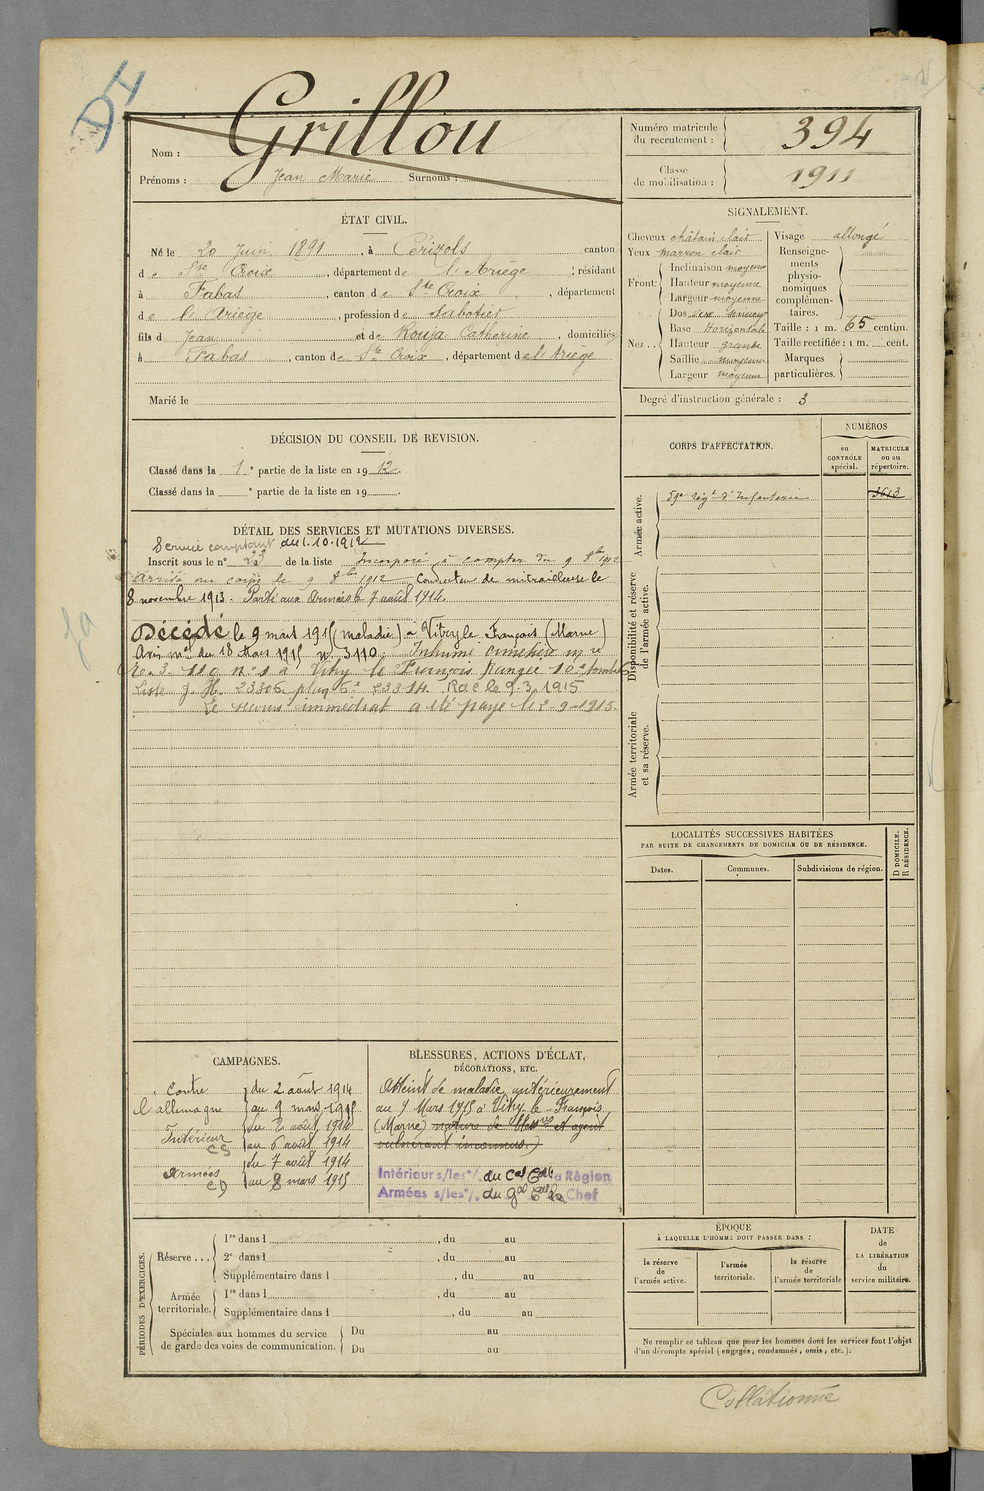 DI
Grillou
Nom :
Prénoms : Jean Marie Surnoms :
Numéro matricule du recrutement : 394
Classe de mobilisation : 1911
ÉTAT CIVIL.
Né le 20 Juin 1891, à Cérizols canton
de Ste Croix, département de l'Ariège ; résidant
à Fabas, canton de Ste Croix, département
de l'Ariège, profession de Sabotier
fils d Jean et de Rouja Catherine, domiciliés
à Fabas, canton de Ste Croix, département de l'Ariège
Marié le
SIGNALEMENT.
Cheveux châtain clair
Yeux marron clair
Front : Inclinaison moyenne
Hauteur moyenne
Largeur moyenne
Nez .. Dos
Base Horizontale
Hauteur grande
Saillie moyenne
Largeur moyenne
Visage allongé
Renseignements physionomiques complémentaires.
Taille : 1 m. 65 centim.
Taille rectifiée : 1 m. cent.
Marques particulières.
Degré d'instruction générale : 3
DÉCISION DU CONSEIL DE REVISION.
Classé dans la 1e partie de la liste en 1912.
Classé dans la e partie de la liste en 19 .
CORPS D'AFFECTATION.
NUMÉROS
au CONTRÔLE spécial.
MATRICULE ou au répertoire.
Armée active.
59e Régt d'Infanterie 3613
Disponibilité et réserve de l'armée active.
Armée territoriale et sa réserve.
DÉTAIL DES SERVICES ET MUTATIONS DIVERSES.
Service comptant du 1.10.1912
Inscrit sous le n° de la liste Incorporé à compter du 9 8bre 1912
Arrivé au corps le 9 8bre 1912 Conducteur de mitrailleuse le
8 novembre 1913. Parti aux Armées le 7 août 1914.
Décédé le 9 mars 1915 (maladie) à Vitry le François (Marne)
Avis mel du 18 Mars 1915 n° 3110. Inhumé cimetière mre
Rte 3. 110 n° 1 à Vitry le François Rangée 10e tombe 6
Liste J. H. 23306 plus 6e 23314. Raé le 9.3.1915
Le secours immédiat a été payé le 2-9-1915.
LOCALITÉS SUCCESSIVES HABITÉES
PAR SUITE DE CHANGEMENTS DE DOMICILE OU DE RÉSIDENCE.
Dates. Communes. Subdivisions de région. D DOMICILE. R RÉSIDENCE.
CAMPAGNES.
Contre l'allemagne du 2 août 1914
au 9 mars 1915
Intérieur CS du 2 août 1914
au 6 août 1914
Armées CD du 7 août 1914
au 8 mars 1915
BLESSURES, ACTIONS D'ÉCLAT,
DÉCORATIONS, ETC.
Atteint de maladie antérieurement
au 9 Mars 1915 à Vitry-le-François
(Marne) nature de blessures et agent
vulnérant inconnus.)
Intérieur s/les°/. du Cdt Gal la Région
Armées s/les°/. du gal en Chef
PÉRIODES D'EXERCICES.
Réserve ... 1re dans l , du au
2e dans l , du au
Supplémentaire dans l , du au
Armée territoriale. 1re dans l , du au
Supplémentaire dans l , du au
Spéciales aux hommes du service de garde des voies de communication. Du au
Du au
ÉPOQUE
À LAQUELLE L'HOMME DOIT PASSER DANS :
la réserve de l'armée active.
l'armée territoriale.
la réserve de l'armée territoriale
DATE de LA LIBÉRATION du service militaire.
Ne remplir ce tableau que pour les hommes dont les services font l'objet
d'un décompte spécial (engagés, condamnés, omis, etc.).
Collationné